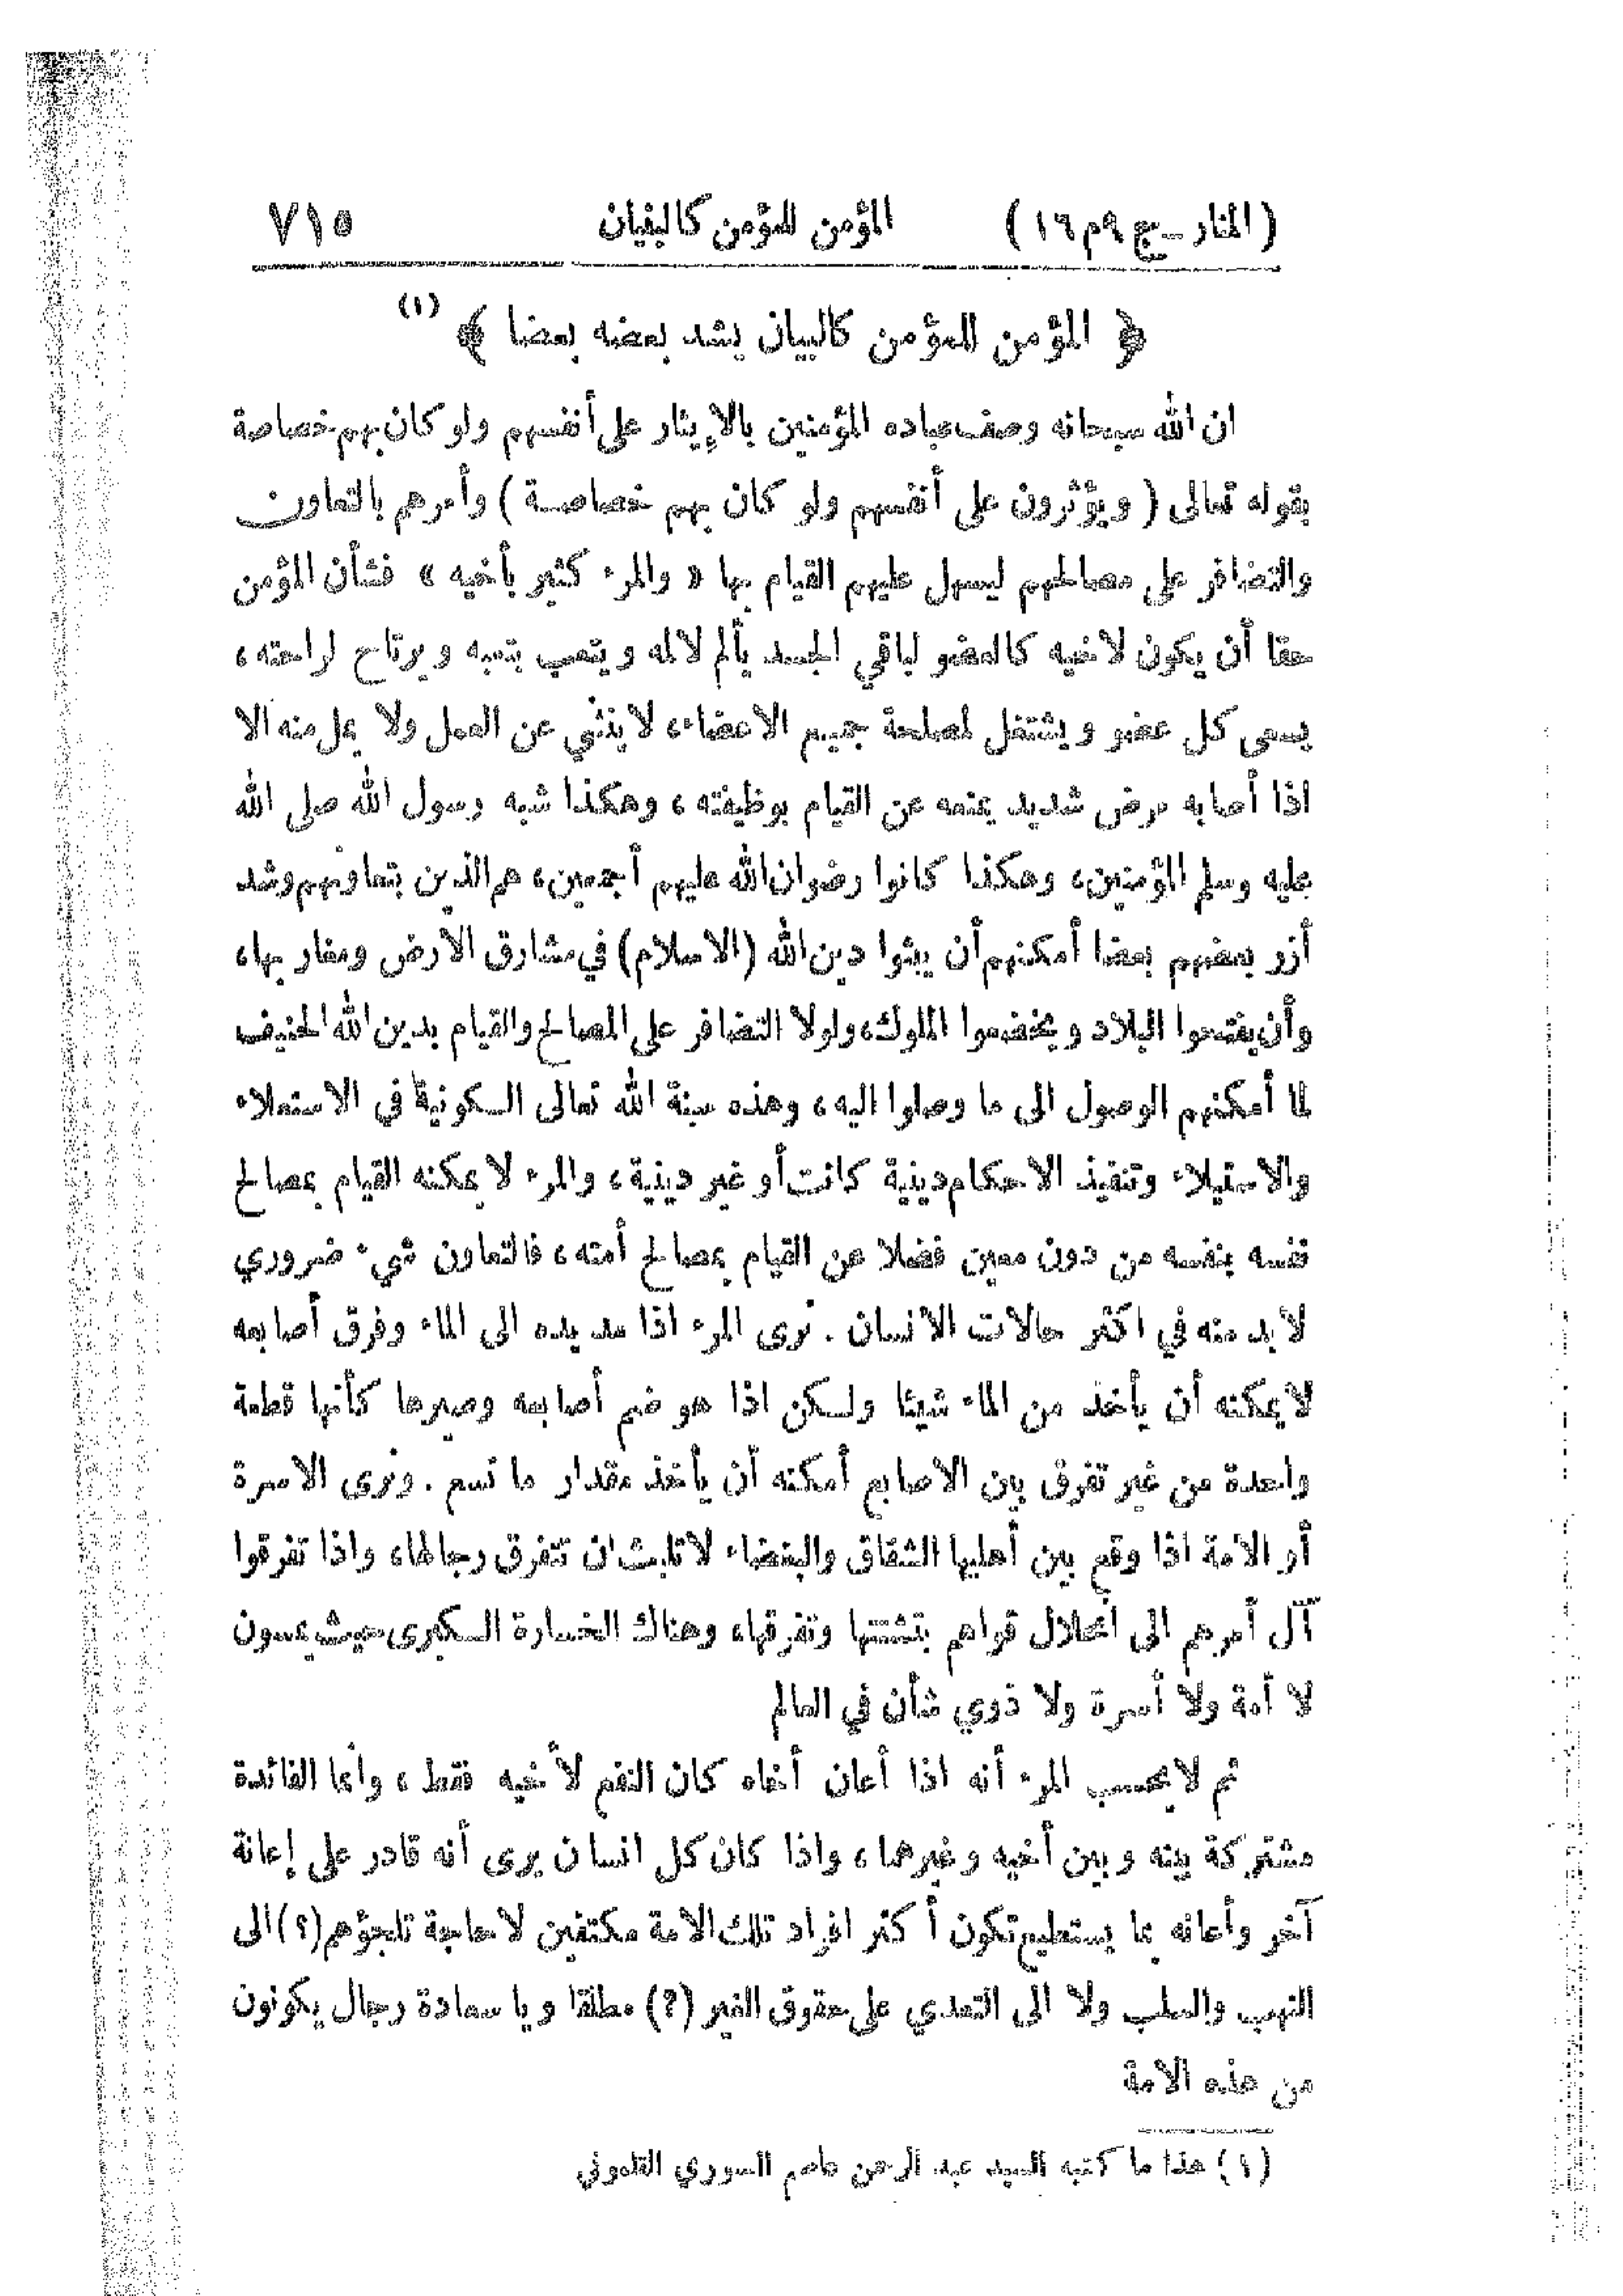 (المنار_ج٩م١٦) المؤمن للمؤمن كالبنيان ٧١٥
﴿ المؤمن للمؤمن كالبيان يشد بعضه بعضا ﴾ (١)
ان الله سبحانه وصف عباده المؤمنين بالإيثار على أنفسهم ولو كان بهم خصاصة
بقوله تعالى ( ويؤثرون على أنفسهم ولو كان بهم خصاصة ) وأمرهم بالتعاون
والتضافر على مصالحهم ليسهل عليهم القيام بها « والمرء كثير بأخيه » فشأن المؤمن
حقا أن يكون لاخيه كالعضو لباقي الجسد يألم لالمه ويتعب بتعبه ويرتاح لراحته ،
يسعى كل عضو ويشتغل لمصلحة جميع الاعضاء، لا ينثني عن العمل ولا يمل منه الا
اذا أصابه مرض شديد يمنعه عن القيام بوظيفته ، وهكذا شبه رسول الله صلى الله
عليه وسلم المؤمنين، وهكذا كانوا رضوان الله عليهم أجمعين، هم الذين بتعاونهم وشد
أزر بعضهم بعضا أمكنهم أن يبثوا دين الله (الاسلام) في مشارق الأرض ومغاربها،
وأن يفتحوا البلاد ويخضعوا الملوك، ولولا التضافر على المصالح والقيام بدين الله الحنيف
لما أمكنهم الوصول الى ما وصلوا اليه ، وهذه سنة الله تعالى الكونية في الاستعلاء
والاستيلاء وتنفيذ الاحكام دينية كانت أو غير دينية ، والمرء لا يمكنه القيام بمصالح
نفسه بنفسه من دون معين فضلا عن القيام بمصالح أمته ، فالتعاون شيء ضروري
لا بد منه في اكثر حالات الانسان . نرى المرء اذا مد يده الى الماء وفرق أصابعه
لا يمكنه أن يأخذ من الماء شيئا ولكن اذا هو ضم أصابعه وصيرها كأنها قطعة
واحدة من غير تفرق بين الاصابع أمكنه أن يأخذ مقدار ما تسع . ونرى الاسرة
أو الامة اذا وقع بين أهليها الشقاق والبغضاء لا تلبث ان تتفرق رجالها، واذا تفرقوا
آل أمرهم الى انحلال قواهم بتشتتها وتفرقها، وهناك الخسارة الكبرى حيث يمسون
لا أمة ولا أسرة ولا ذوي شأن في العالم
ثم لا يحسب المرء أنه اذا أعان أخاه كان النفع لأخيه فقط ، وانما الفائدة
مشتركة بينه وبين أخيه وغيرهما ، واذا كان كل انسان يرى أنه قادر على إعانة
آخر وأعانه بما يستطيع تكون أكثر افراد تلك الامة مكتفين لا حاجة تلجؤهم (؟) الى
النهب والسلب ولا الى التعدي على حقوق الغير (؟) مطلقا ويا سعادة رجال يكونون
من هذه الامة
(١) هذا ما كتبه السيد عبد الرحمن عاصم السوري القلموني